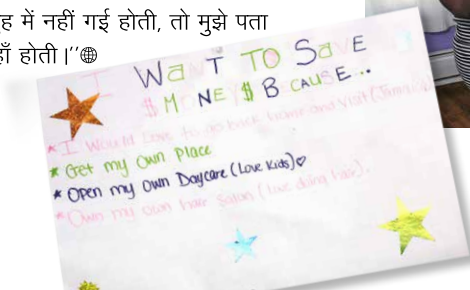 ह में नहीं गई होती, तो मुझे पता
हाँ होती।”
I WANT TO SAVE
$MONEY$ BECAUSE...
*I Would Love to go back home and visit
* Get my Own Place
* Open my Own Daycare (Love Kids)♡
*Own my own hair Salon (Love doing hair).